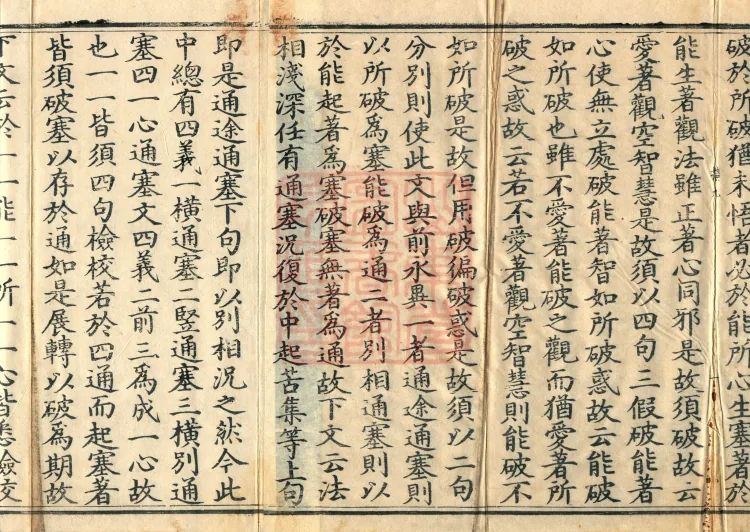 破於所破猶未悟者必於能所心生塞著於
能生著觀法雖正著心同邪是故須破故云
愛著觀空智慧是故須以四句三假破能著
心使無立處破能著智如所破惑故云能破
如所破也雖不愛著能破之觀而猶愛著所
破之惑故云若不愛著觀空智慧則能破不
如所破是故但用破徧破惑是故須以二句
分別則使此文與前永異一者通途通塞則
以所破爲塞能破爲通二者別相通塞則以
於能起著爲塞破塞無著爲通故下文云法
相淺深任有通塞況復於中起苦集等上句
即是通途通塞下句即以別相況之然今此
中總有四義一橫通塞二竪通塞三橫別通
塞四一心通塞文四義二前三爲成一心故
也一一皆須四句檢校若於四通而起塞著
皆須破塞以存於通如是展轉以破爲期故
下文云於一一能一一所一一心皆悉檢校